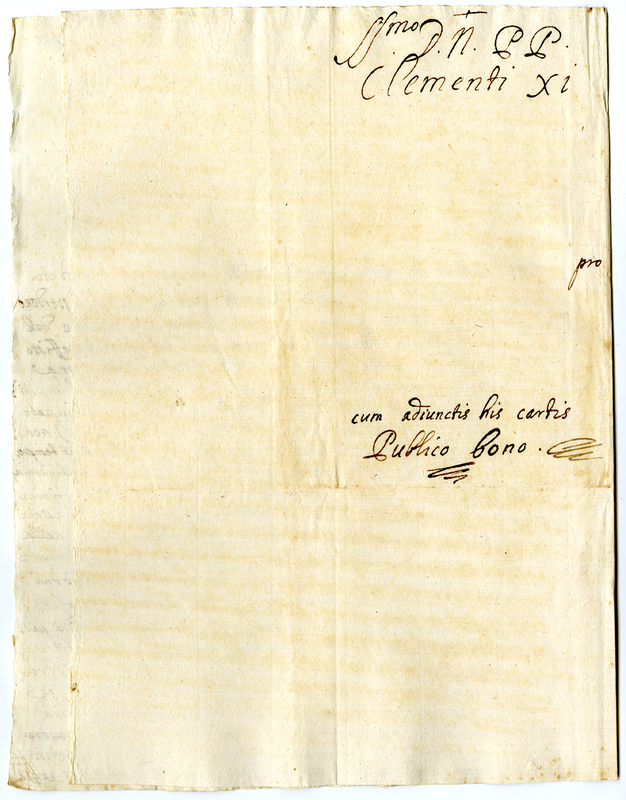 SSmo D. N. PP.
Clementi Xi
pro
cum adiunctis his cartis
Publico bono.